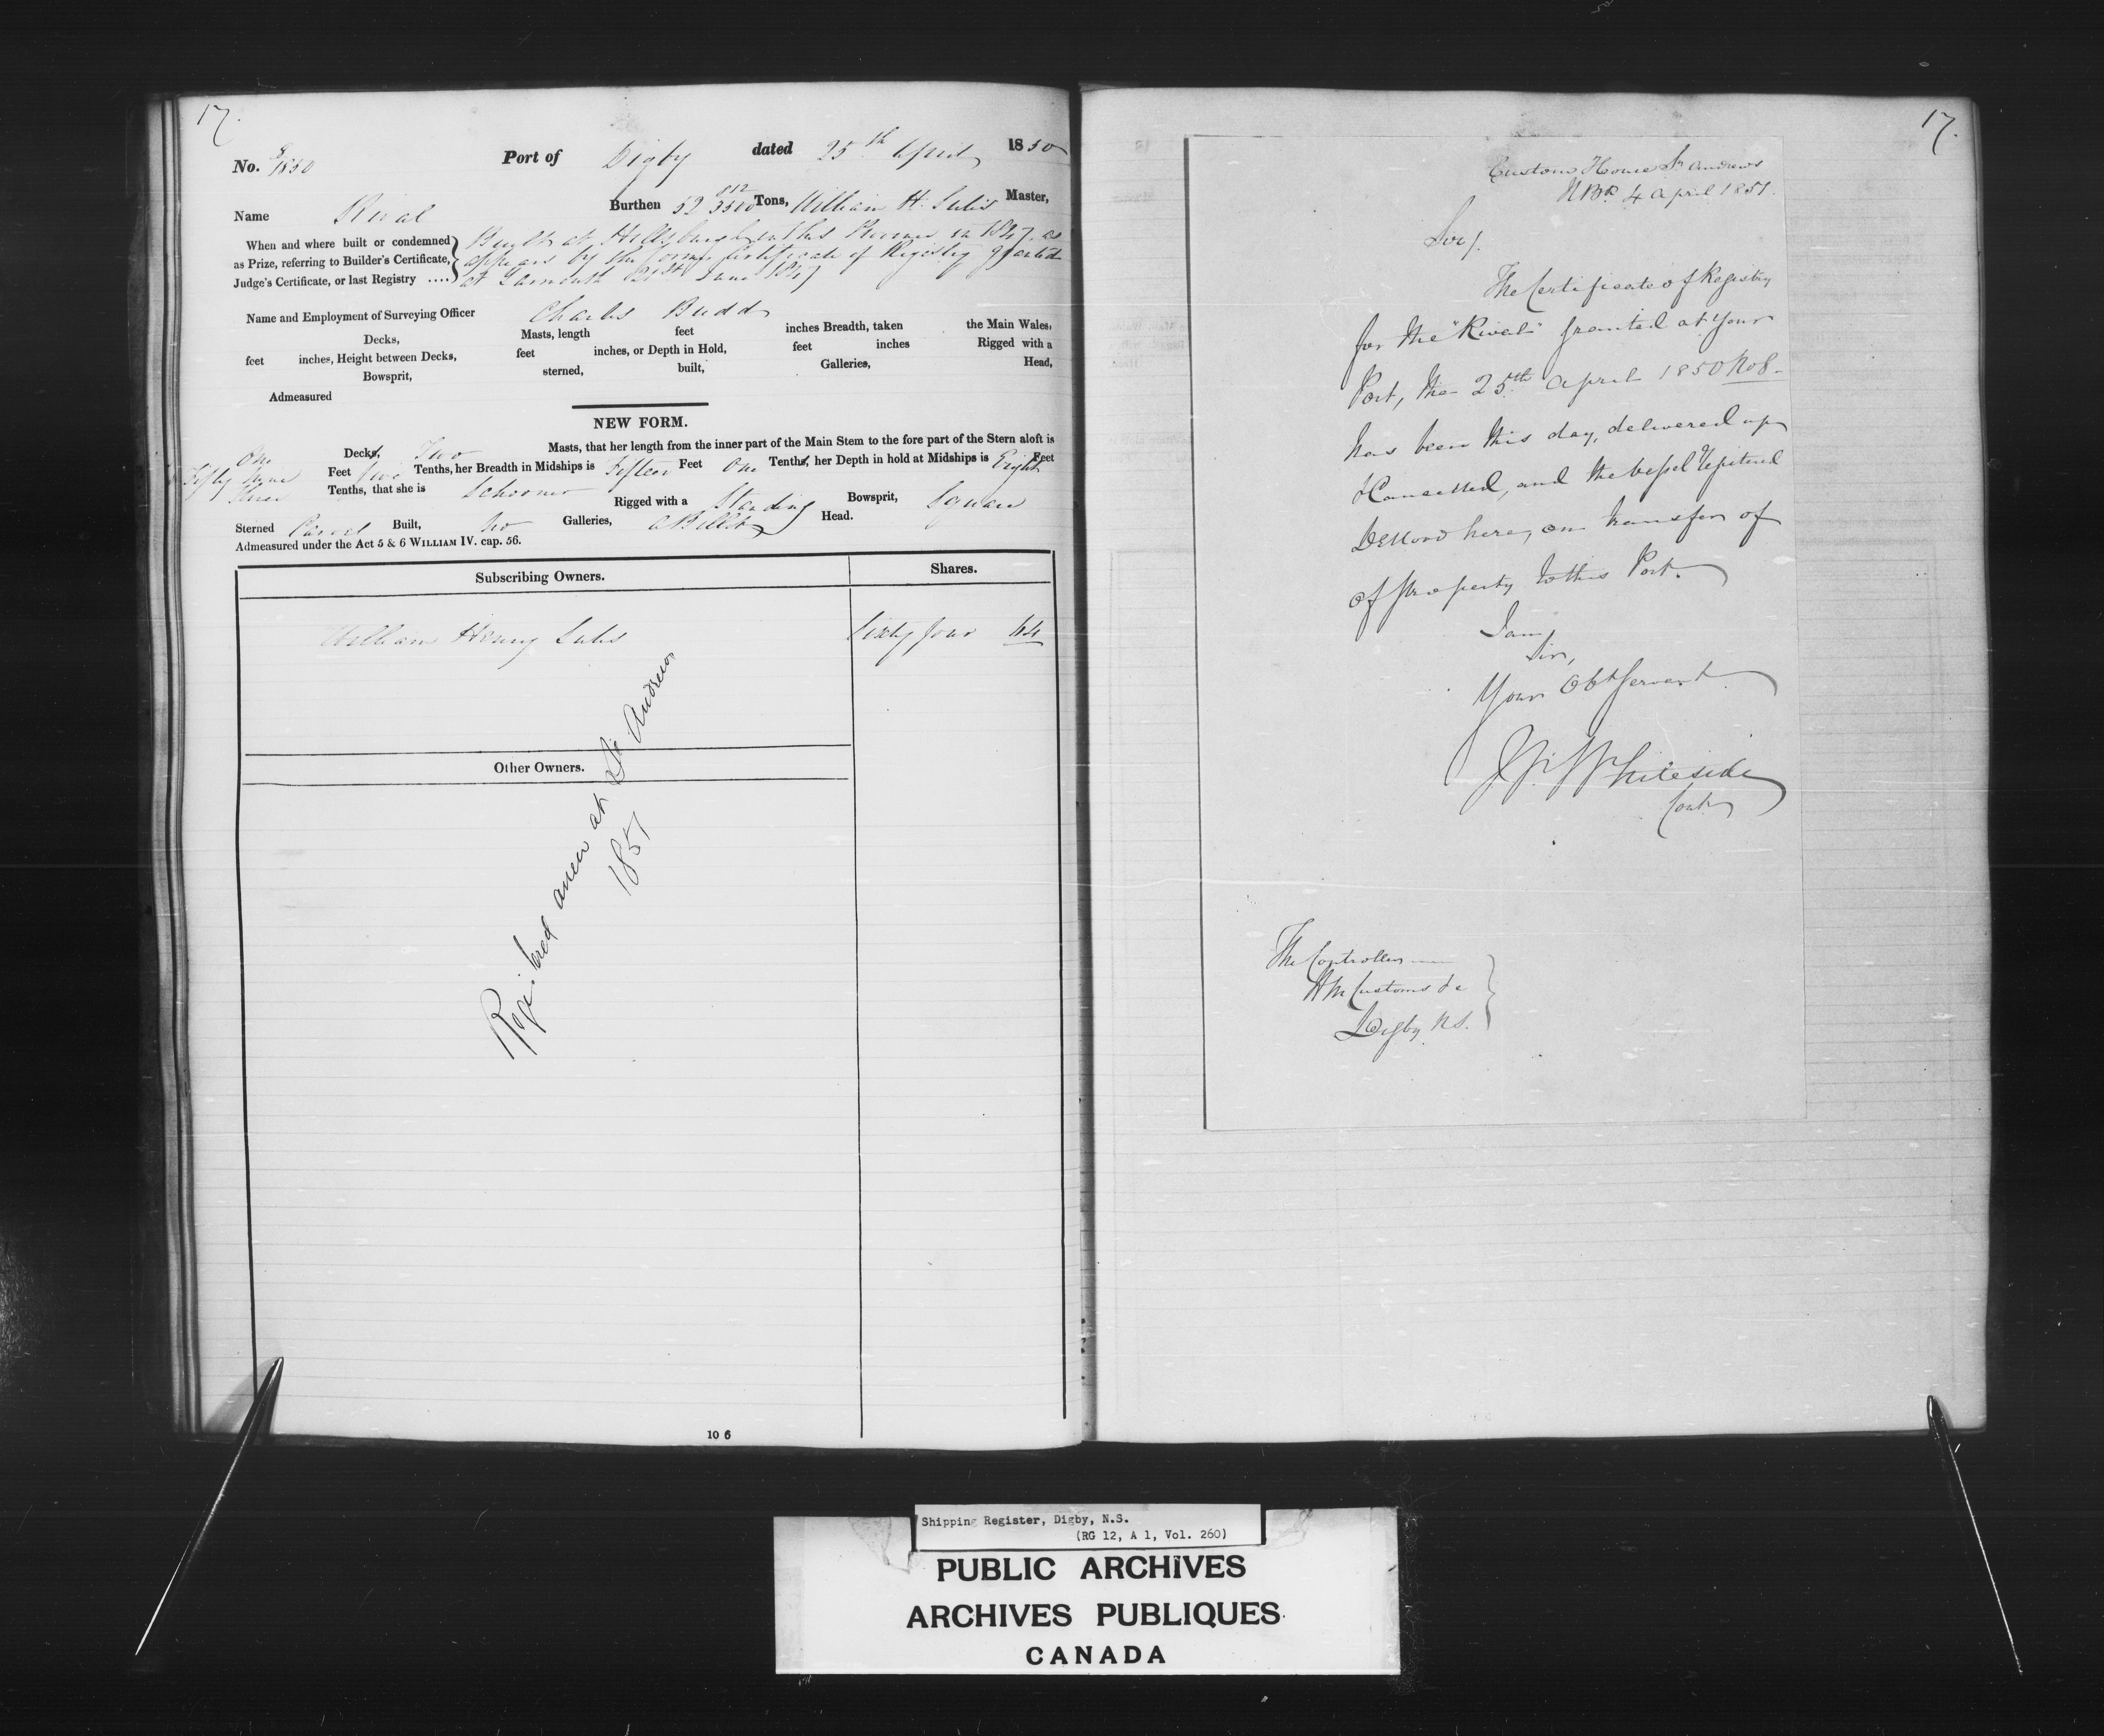 17.
No. 8/1850 Port of Digby dated 25th April 1850
Name Rival Burthen 52 812/3500 Tons, William H. Sulis Master,
When and where built or condemned as Prize, referring to Builder's Certificate, Judge's Certificate, or last Registry ....
Built at Hillsburgh in this Province in 1847. as
appears by the former Certificate of Registry granted
at Yarmouth 21st June 1847
Name and Employment of Surveying Officer Charles Budd
Decks, Masts, length feet inches Breadth, taken the Main Wales,
feet inches, Height between Decks, feet inches, or Depth in Hold, feet inches Rigged with a
Bowsprit, sterned, built, Galleries, Head,
Admeasured
NEW FORM.
One Decks, Two Masts, that her length from the inner part of the Main Stem to the fore part of the Stern aloft is
Fifty Nine Feet five Tenths, her Breadth in Midships is Fifteen Feet One Tenths, her Depth in hold at Midships is Eight Feet
Three Tenths, that she is Schooner Rigged with a Standing Bowsprit, Square
Sterned Carvel Built, No Galleries, a Billet Head.
Admeasured under the Act 5 & 6 WILLIAM IV. cap. 56.
Subscribing Owners. Shares.
William Henry Sulis Sixty four 64
Other Owners.
Registered anew at St. Andrews
1851
10 6
17.
Custom House St Andrews
N Bk 4 April 1851.
Sir/.
The Certificate of Registry
for the "Rival" granted at Your
Port, the 25th April 1850 No 8
has been this day, delivered up
& Cancelled, and the vessel registered
De Novo here, on transfer of
of property to this Port.
I am,
Sir,
Your Obt Servant
Whiteside
Cont
The Controller
H M Customs &c
Digby N.S.
Shipping Register, Digby, N.S.
(RG 12, A 1, Vol. 260)
PUBLIC ARCHIVES
ARCHIVES PUBLIQUES
CANADA